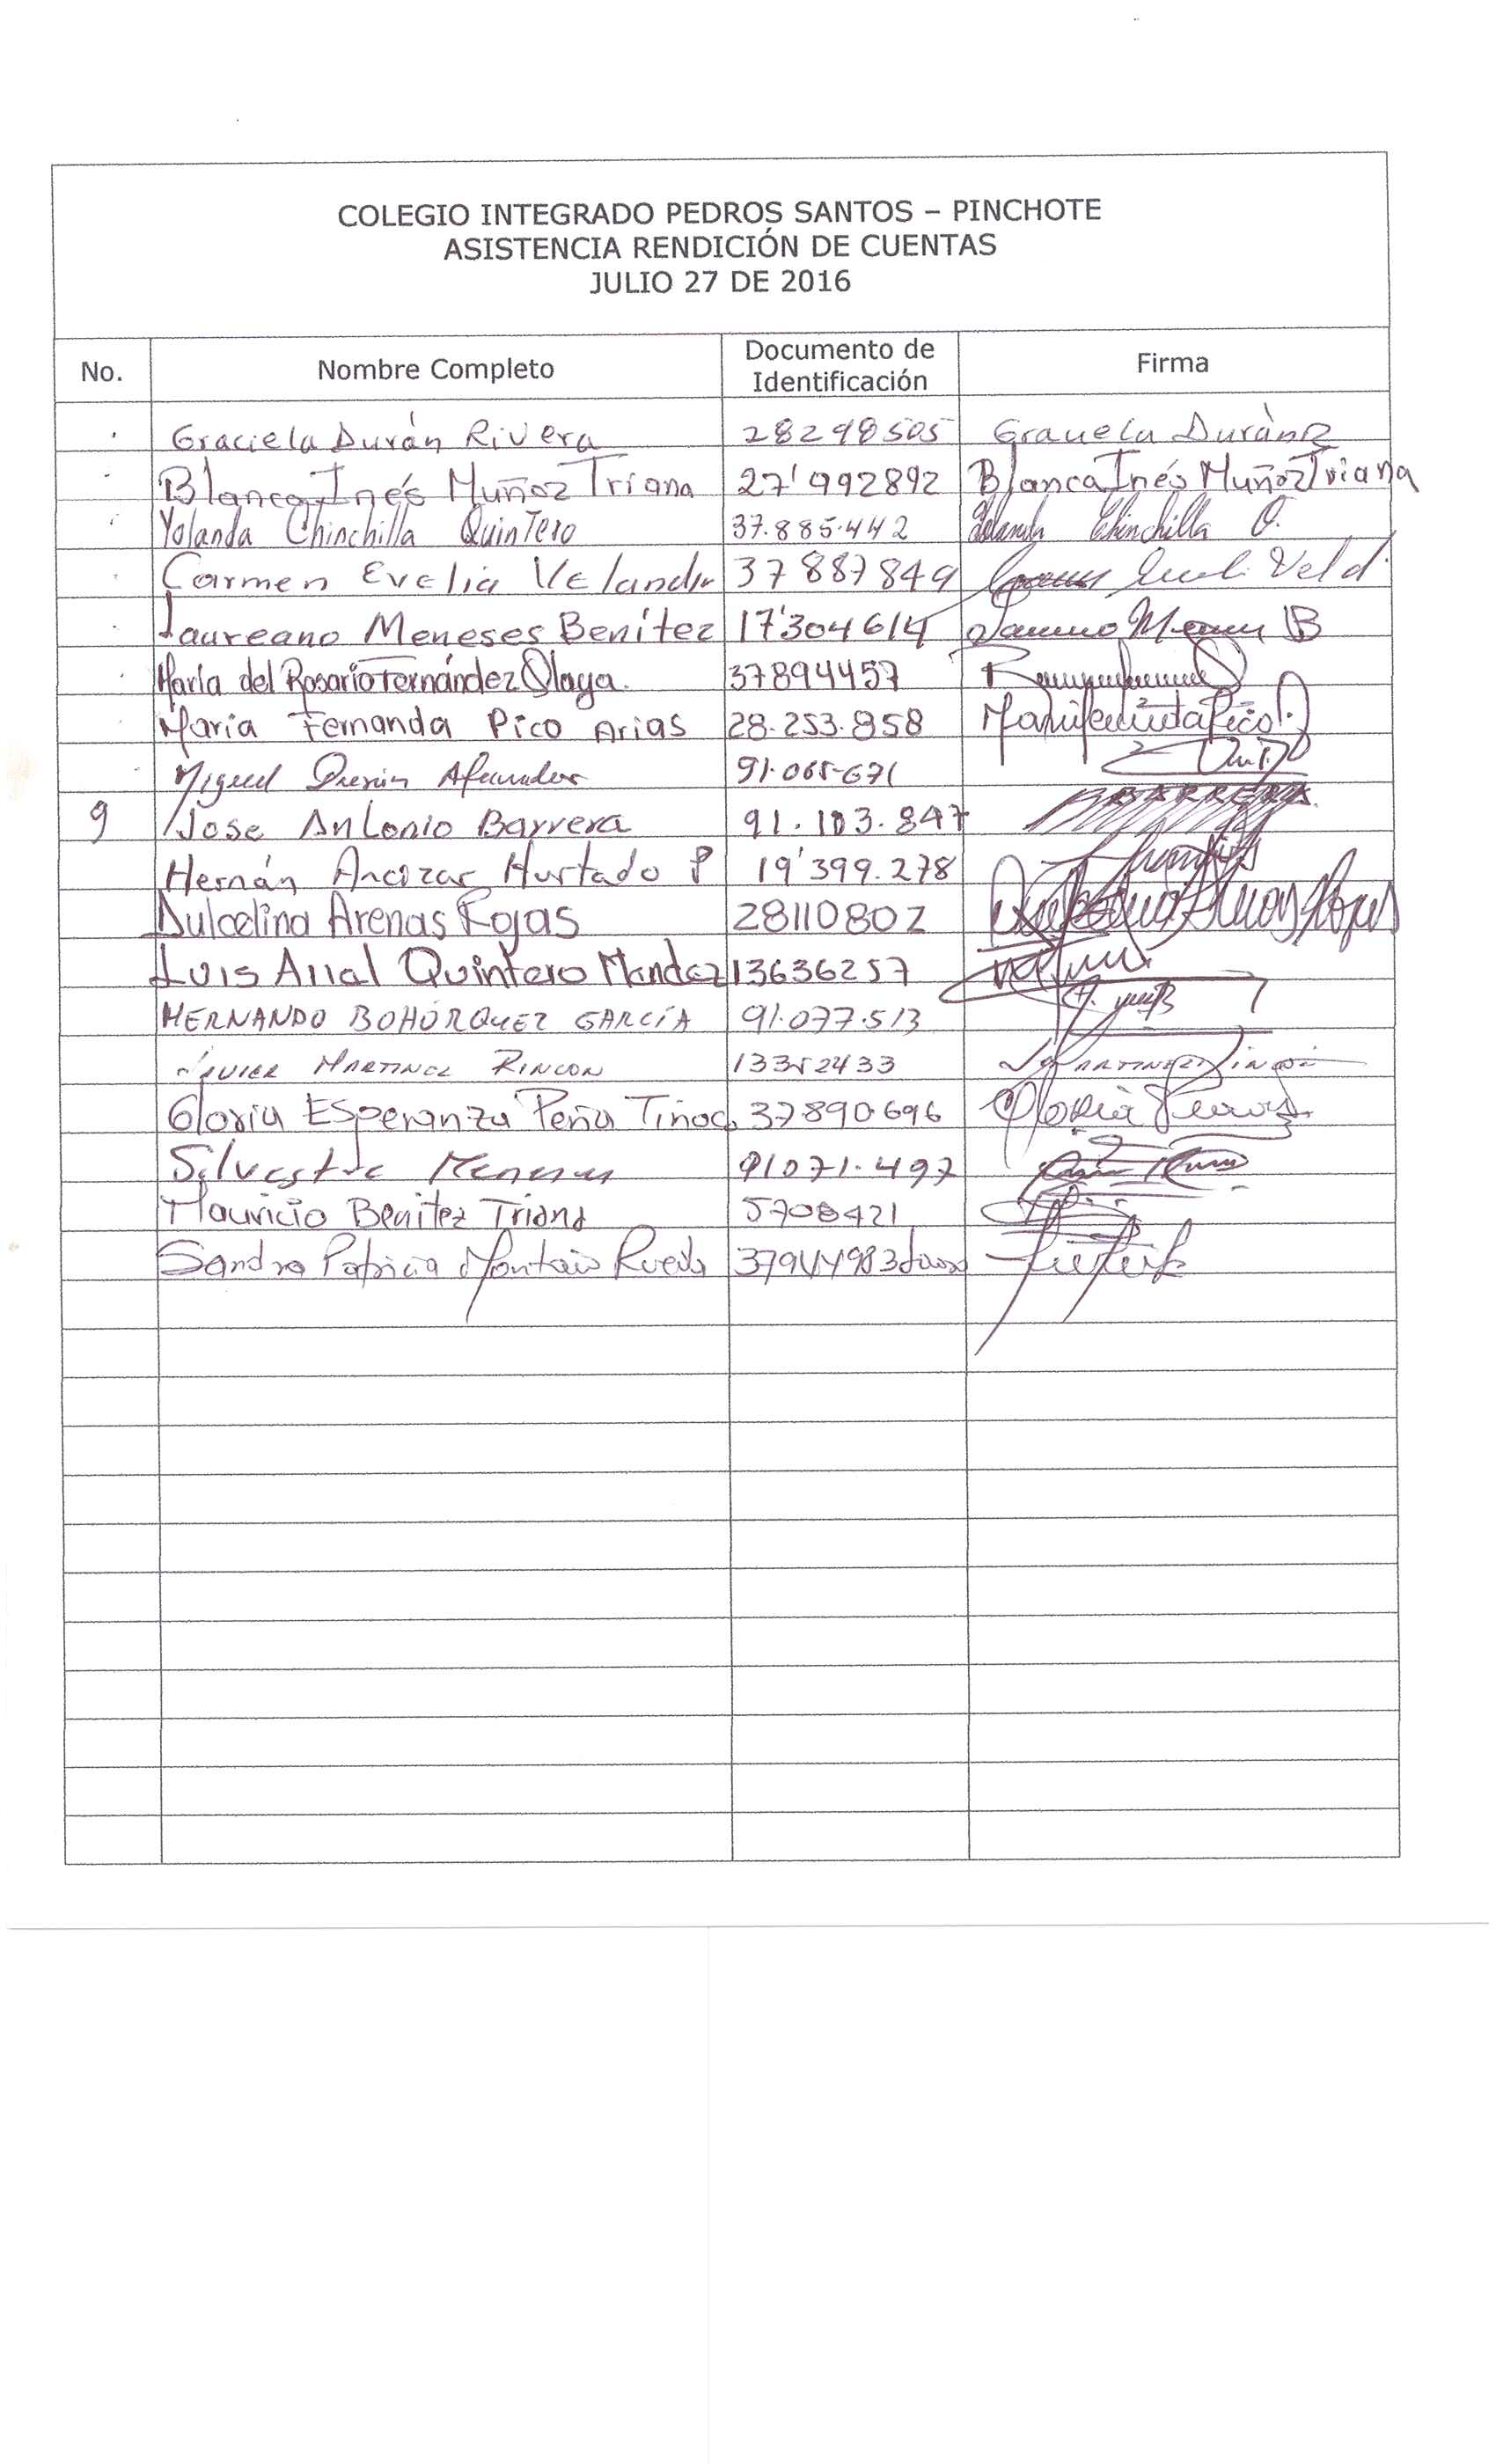 COLEGIO INTEGRADO PEDROS SANTOS – PINCHOTE
ASISTENCIA RENDICIÓN DE CUENTAS
JULIO 27 DE 2016
No. Nombre Completo Documento de Identificación Firma
Graciela Durán Rivera 28298505 Graciela Durán R
Blanca Inés Muñoz Triana 27'992892 Blanca Inés Muñoz Triana
Yolanda Chinchilla Quintero 37.885.442 Yolanda Chinchilla Q.
Carmen Evelia Velandia 37887849
Laureano Meneses Benítez 17'304614
María del Rosario Fernández Olaya. 37894457
María Fernanda Pico Arias 28.253.858
Miguel 91.065.671
9 Jose Antonio Barrera 91.103.847 BARRERA
Hernán Ancizar Hurtado P 19'399.278
Dulcelina Arenas Rojas 28110802
Luis Quintero 13636257
HERNANDO BOHÓRQUEZ GARCÍA 91.077.513
JAVIER MARTINEZ RINCON 13352433 MARTINEZ Rincón
Gloria Esperanza Peña Tinoco 37890696 Gloria
Silvestre Meneses 91071.497
Mauricio Benítez Triana 5708421
Sandra Patricia Rueda